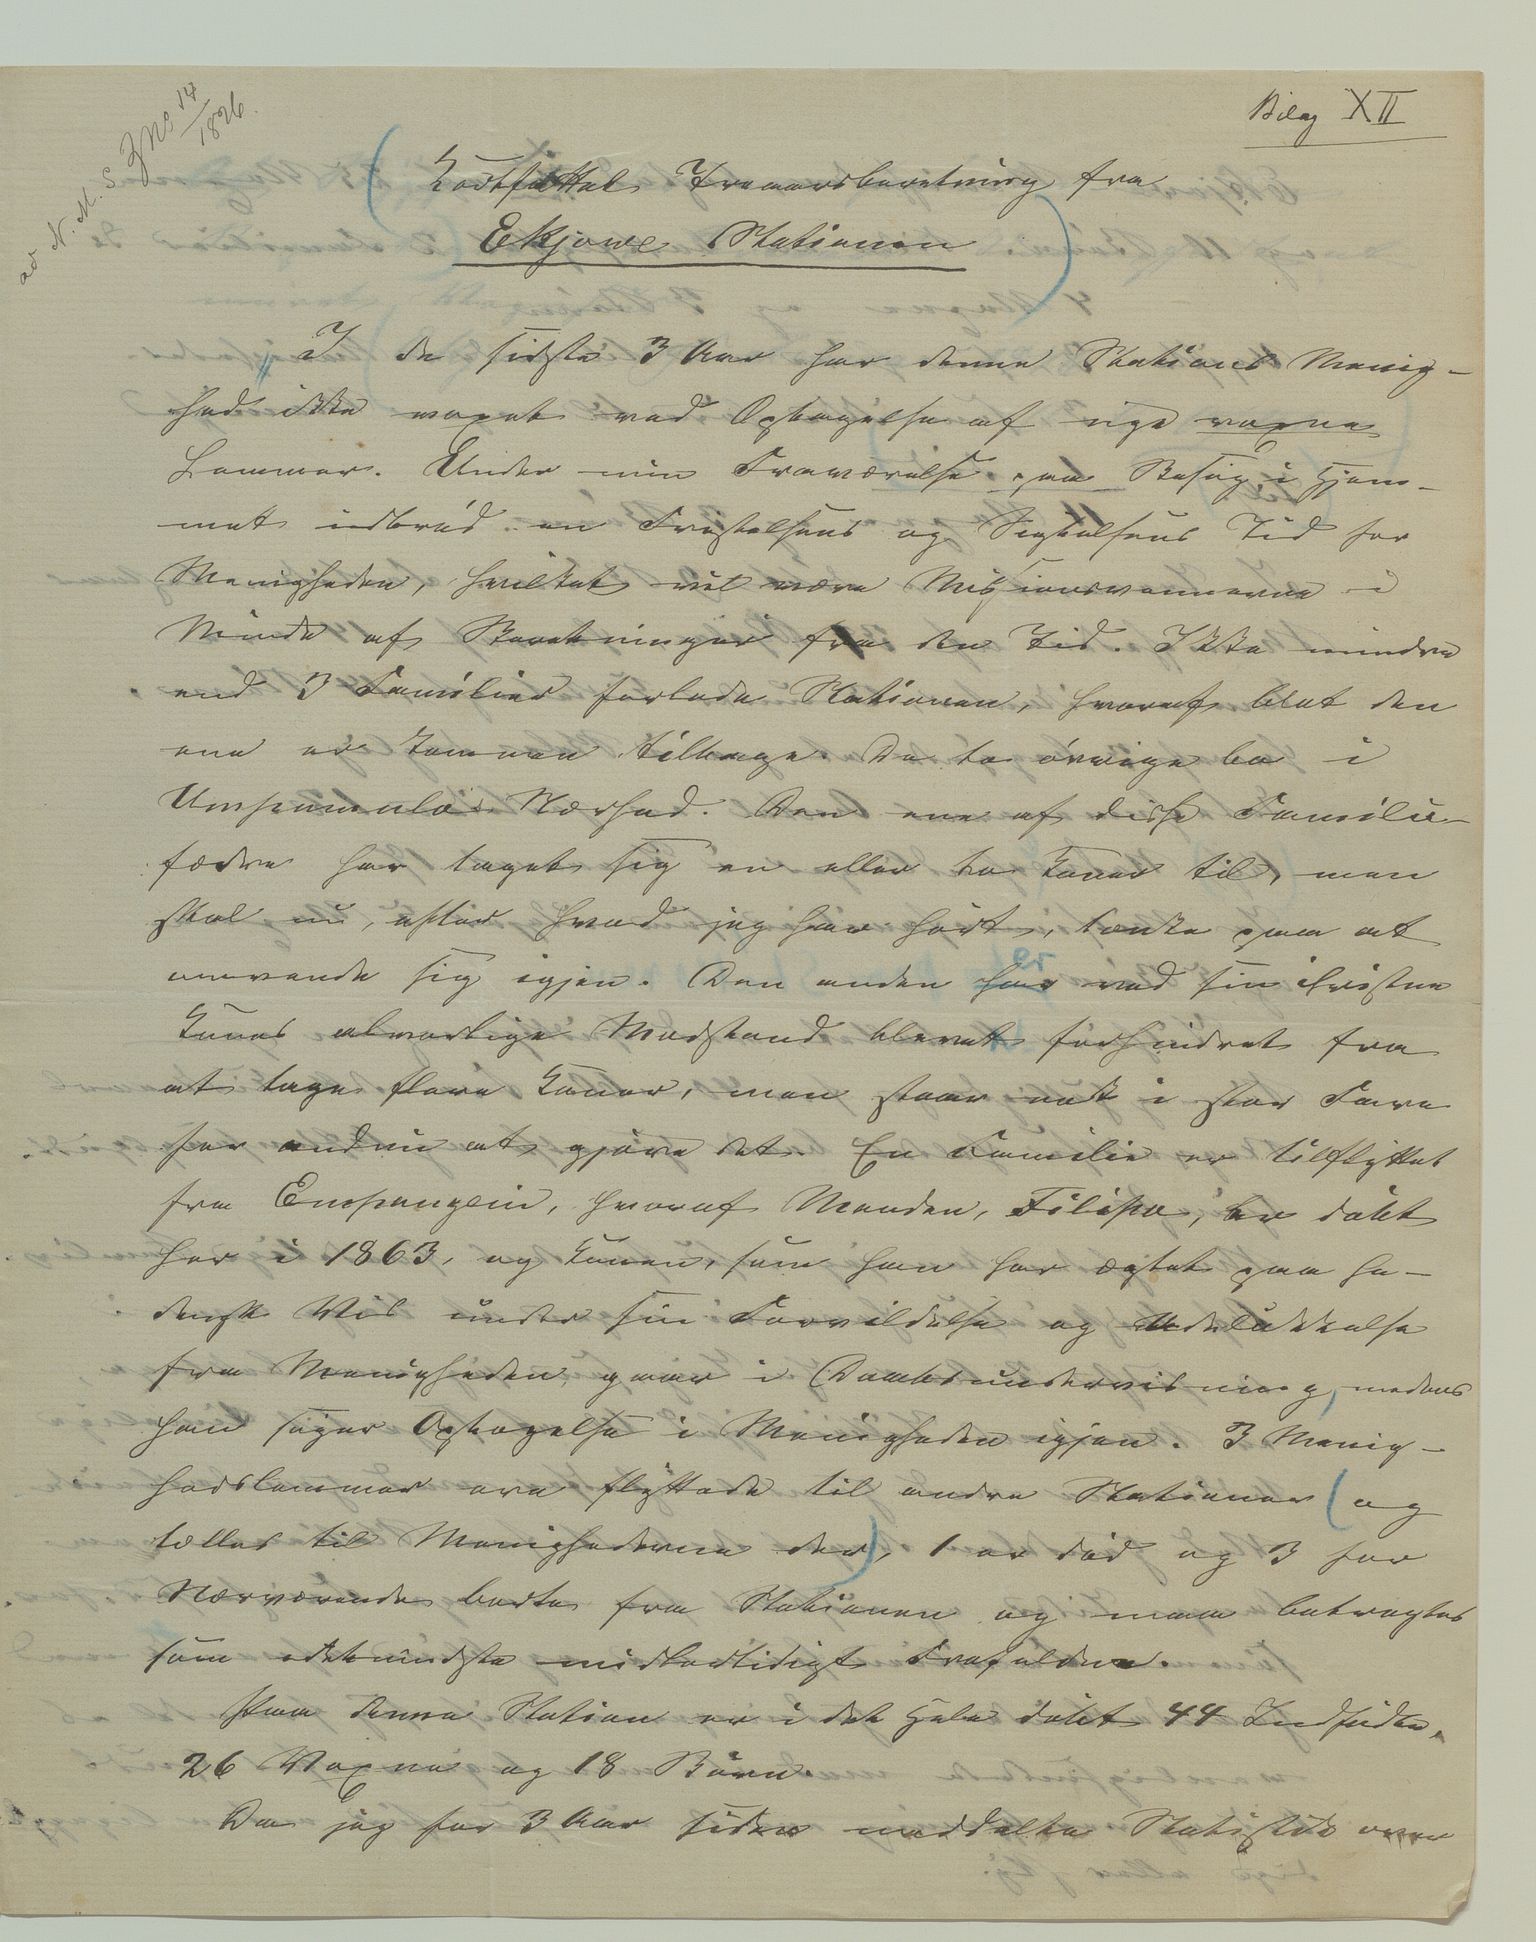 ad N. M. S. Z No 14/1876.
Bilag XII
Kortfattet Treaarsberetning fra
Ekjowe Stationen
I de sidste 3 Aar har denne Stations Menig-
hed ikke voxet ved Optagelse af nye voxne
Lemmer. Under min Fraværelse paa Besøg i Hjem-
met indbrød en Fristelsens og Sigtelsens Tid for
Menigheden, hvilket vil være Missionsvennerne i
Minde af Beretninger fra den Tid. Ikke mindre
end 3 Familier forlode Stationen, hvoraf blot den
ene er kommen tilbage. De to øvrige bo i
Umpumulos Nærhed. Den ene af disse Familie-
fædre har taget sig en eller to Koner til, men
skal nu, efter hvad jeg har hørt, tænke paa at
omvende sig igjen. Den anden har ved sin christne
Kones alvorlige Modstand blevet forhindret fra
at tage flere Koner, men staar nok i stor Fare
for endnu at gjøre det. En Familie er tilflyttet
fra Empangeni, hvoraf Manden, Filipo, er døbt
her i 1863, og Konen, som han har ægtet paa he-
densk Vis under sin Forvildelse og Udelukkelse
fra Menigheden, gaar i Daabsundervisning, medens
han søger Optagelse i Menigheden igjen. 3 Menig-
hedslemmer ere flyttede til andre Stationer (og
tælles til Menighederne der), 1 er død og 3 for
Nærværende borte fra Stationen og maa betragtes
som idetmindste midlertidigt Frafaldne.
Paa denne Station er i det Hele døbt 44 Indfødte,
26 Voxne og 18 Børn.
Da jeg for 3 Aar siden meddelte Statistik over